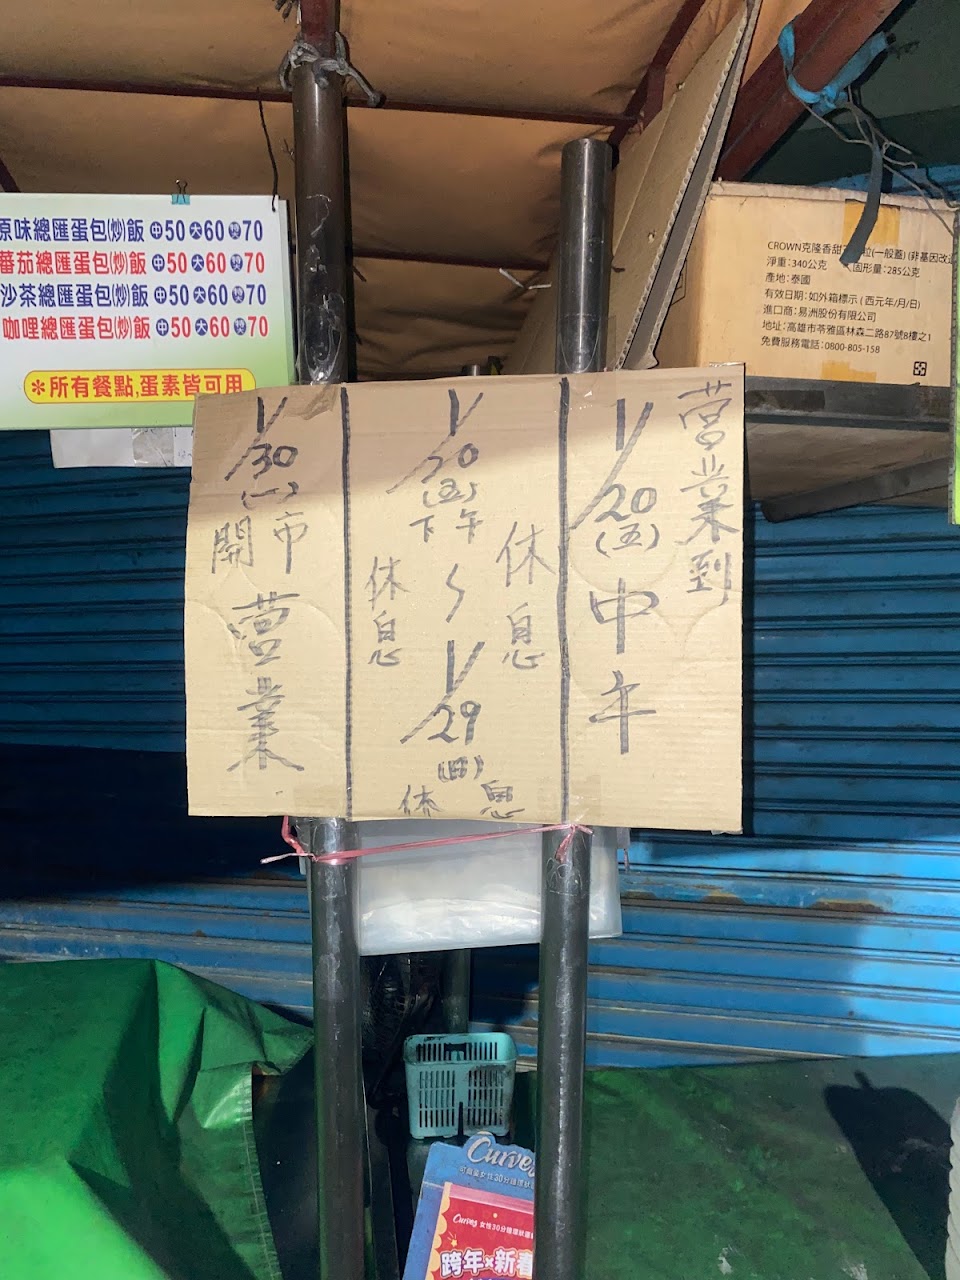 原味總匯蛋包(炒)飯 中50 大60 雙70
蕃茄總匯蛋包(炒)飯 中50 大60 雙70
沙茶總匯蛋包(炒)飯 中50 大60 雙70
咖哩總匯蛋包(炒)飯 中50 大60 雙70
*所有餐點,蛋素皆可用
CROWN克隆香甜 粒(一般蓋) (非基因改
淨重:340公克 固形量:285公克
產地:泰國
有效日期:如外箱標示 (西元年/月/日)
進口商:易洲股份有限公司
地址:高雄市苓雅區林森二路87號8樓之1
免費服務電話:0800-805-158
營業到
1/20(五)中午
休息
1/20(五)下午~1/29(日)
休息
休息
1/30(一)開市
營業
Curves
Curves 女性30分鐘環狀運
跨年×新春